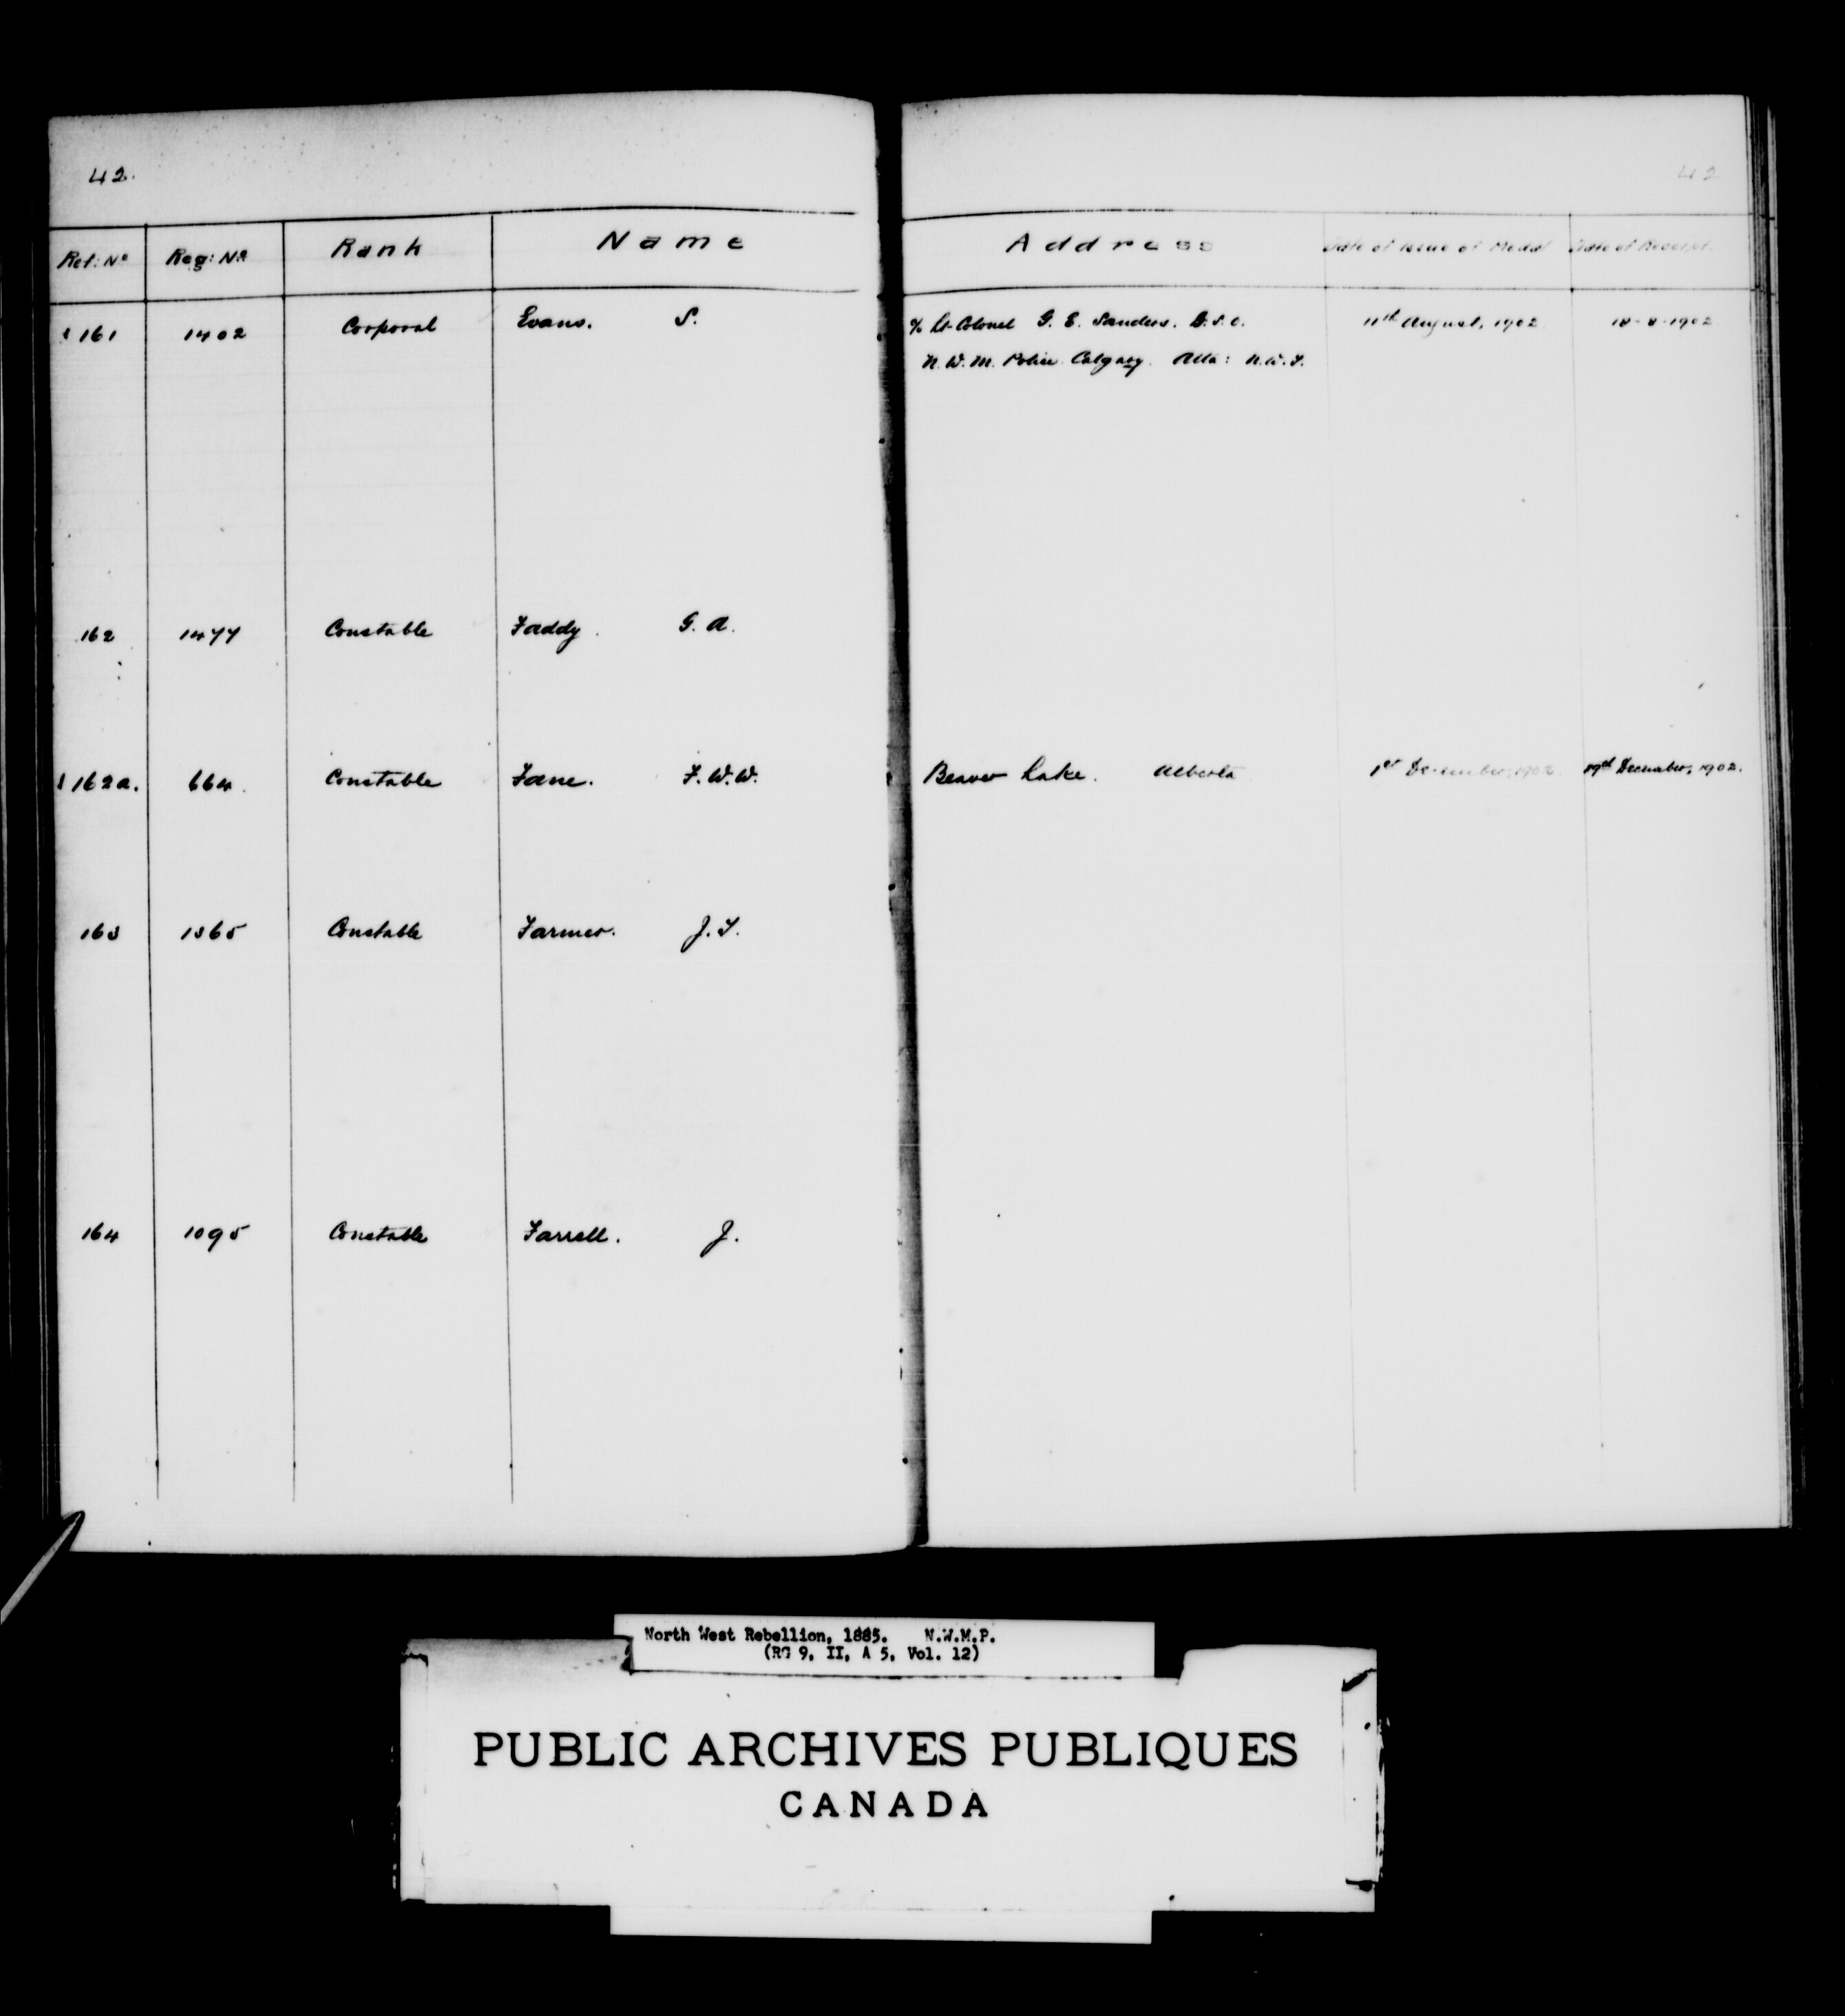 42.
42
Ref: No Reg: No Rank Name Address Date of Issue of Medal Date of Receipt.
161 1402 Corporal Evans. S. c/o Lt-Colonel G. E. Sanders. D.S.O. 11th August, 1902 18-8-1902
N.W.M. Police Calgary. Alta: N.W.T.
162 1477 Constable Faddy. G. A.
162a. 664. Constable Fane. F.W.W. Beaver Lake. Alberta 1st December, 1902. 19th December, 1902.
163 1365 Constable Farmer. J.T.
164 1095 Constable Farrell. J.
North West Rebellion, 1885. N.W.M.P.
(RG 9, II, A 5, Vol. 12)
PUBLIC ARCHIVES PUBLIQUES
CANADA